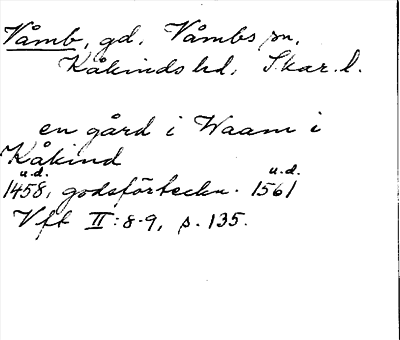 Våmb, gd, Våmbs sn,
Kåkinds hd, Skar. l.
en gård i Waam i
Kåkind
u.d. u.d.
1458, godsförteckn. 1561
Vft II:8-9, s. 135.